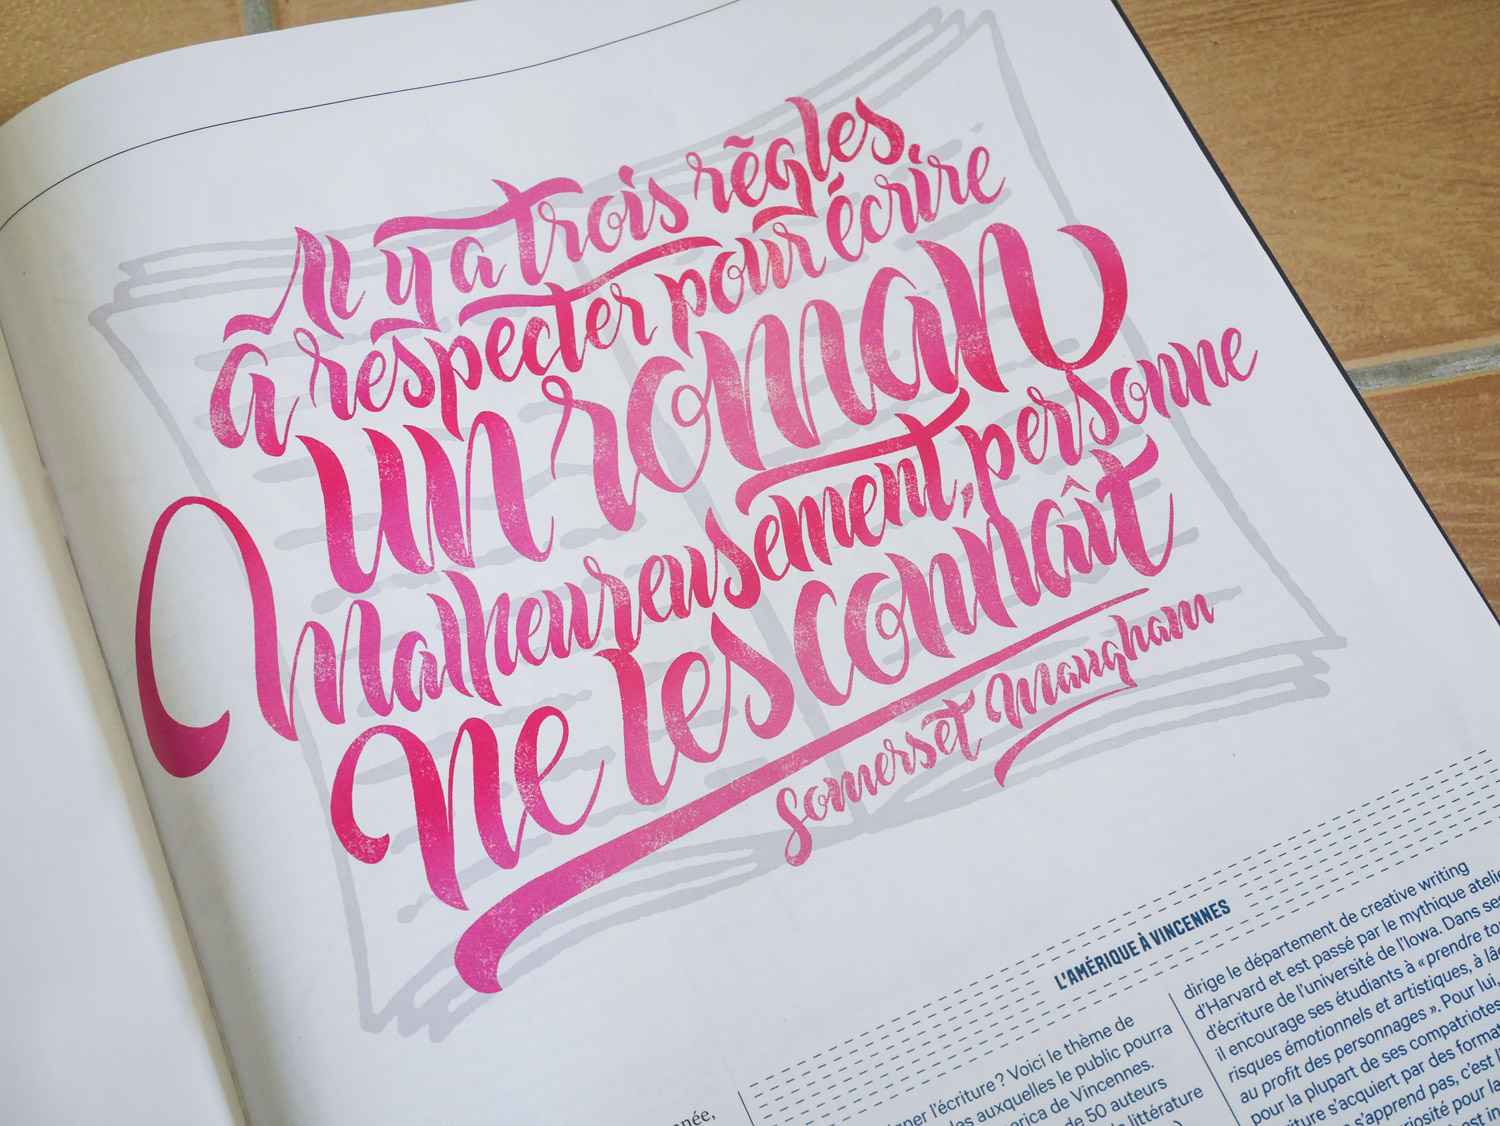 Il y a trois règles,
à respecter pour écrire
un roman
Malheureusement, personne
ne les connaît
Somerset Maugham
L'AMÉRIQUE À VINCENNES
l'écriture ? Voici le thème de
auxquelles le public pourra
de Vincennes.
de 50 auteurs
littérature
dirige le département de creative writing
d'Harvard et est passé par le mythique
d'écriture de l'université de l'Iowa. Dans
il encourage ses étudiants à « prendre
risques émotionnels et artistiques, à
au profit des personnages ». Pour lui,
pour la plupart de ses compatriotes
s'acquiert par des
s'apprend pas, c'est
pour